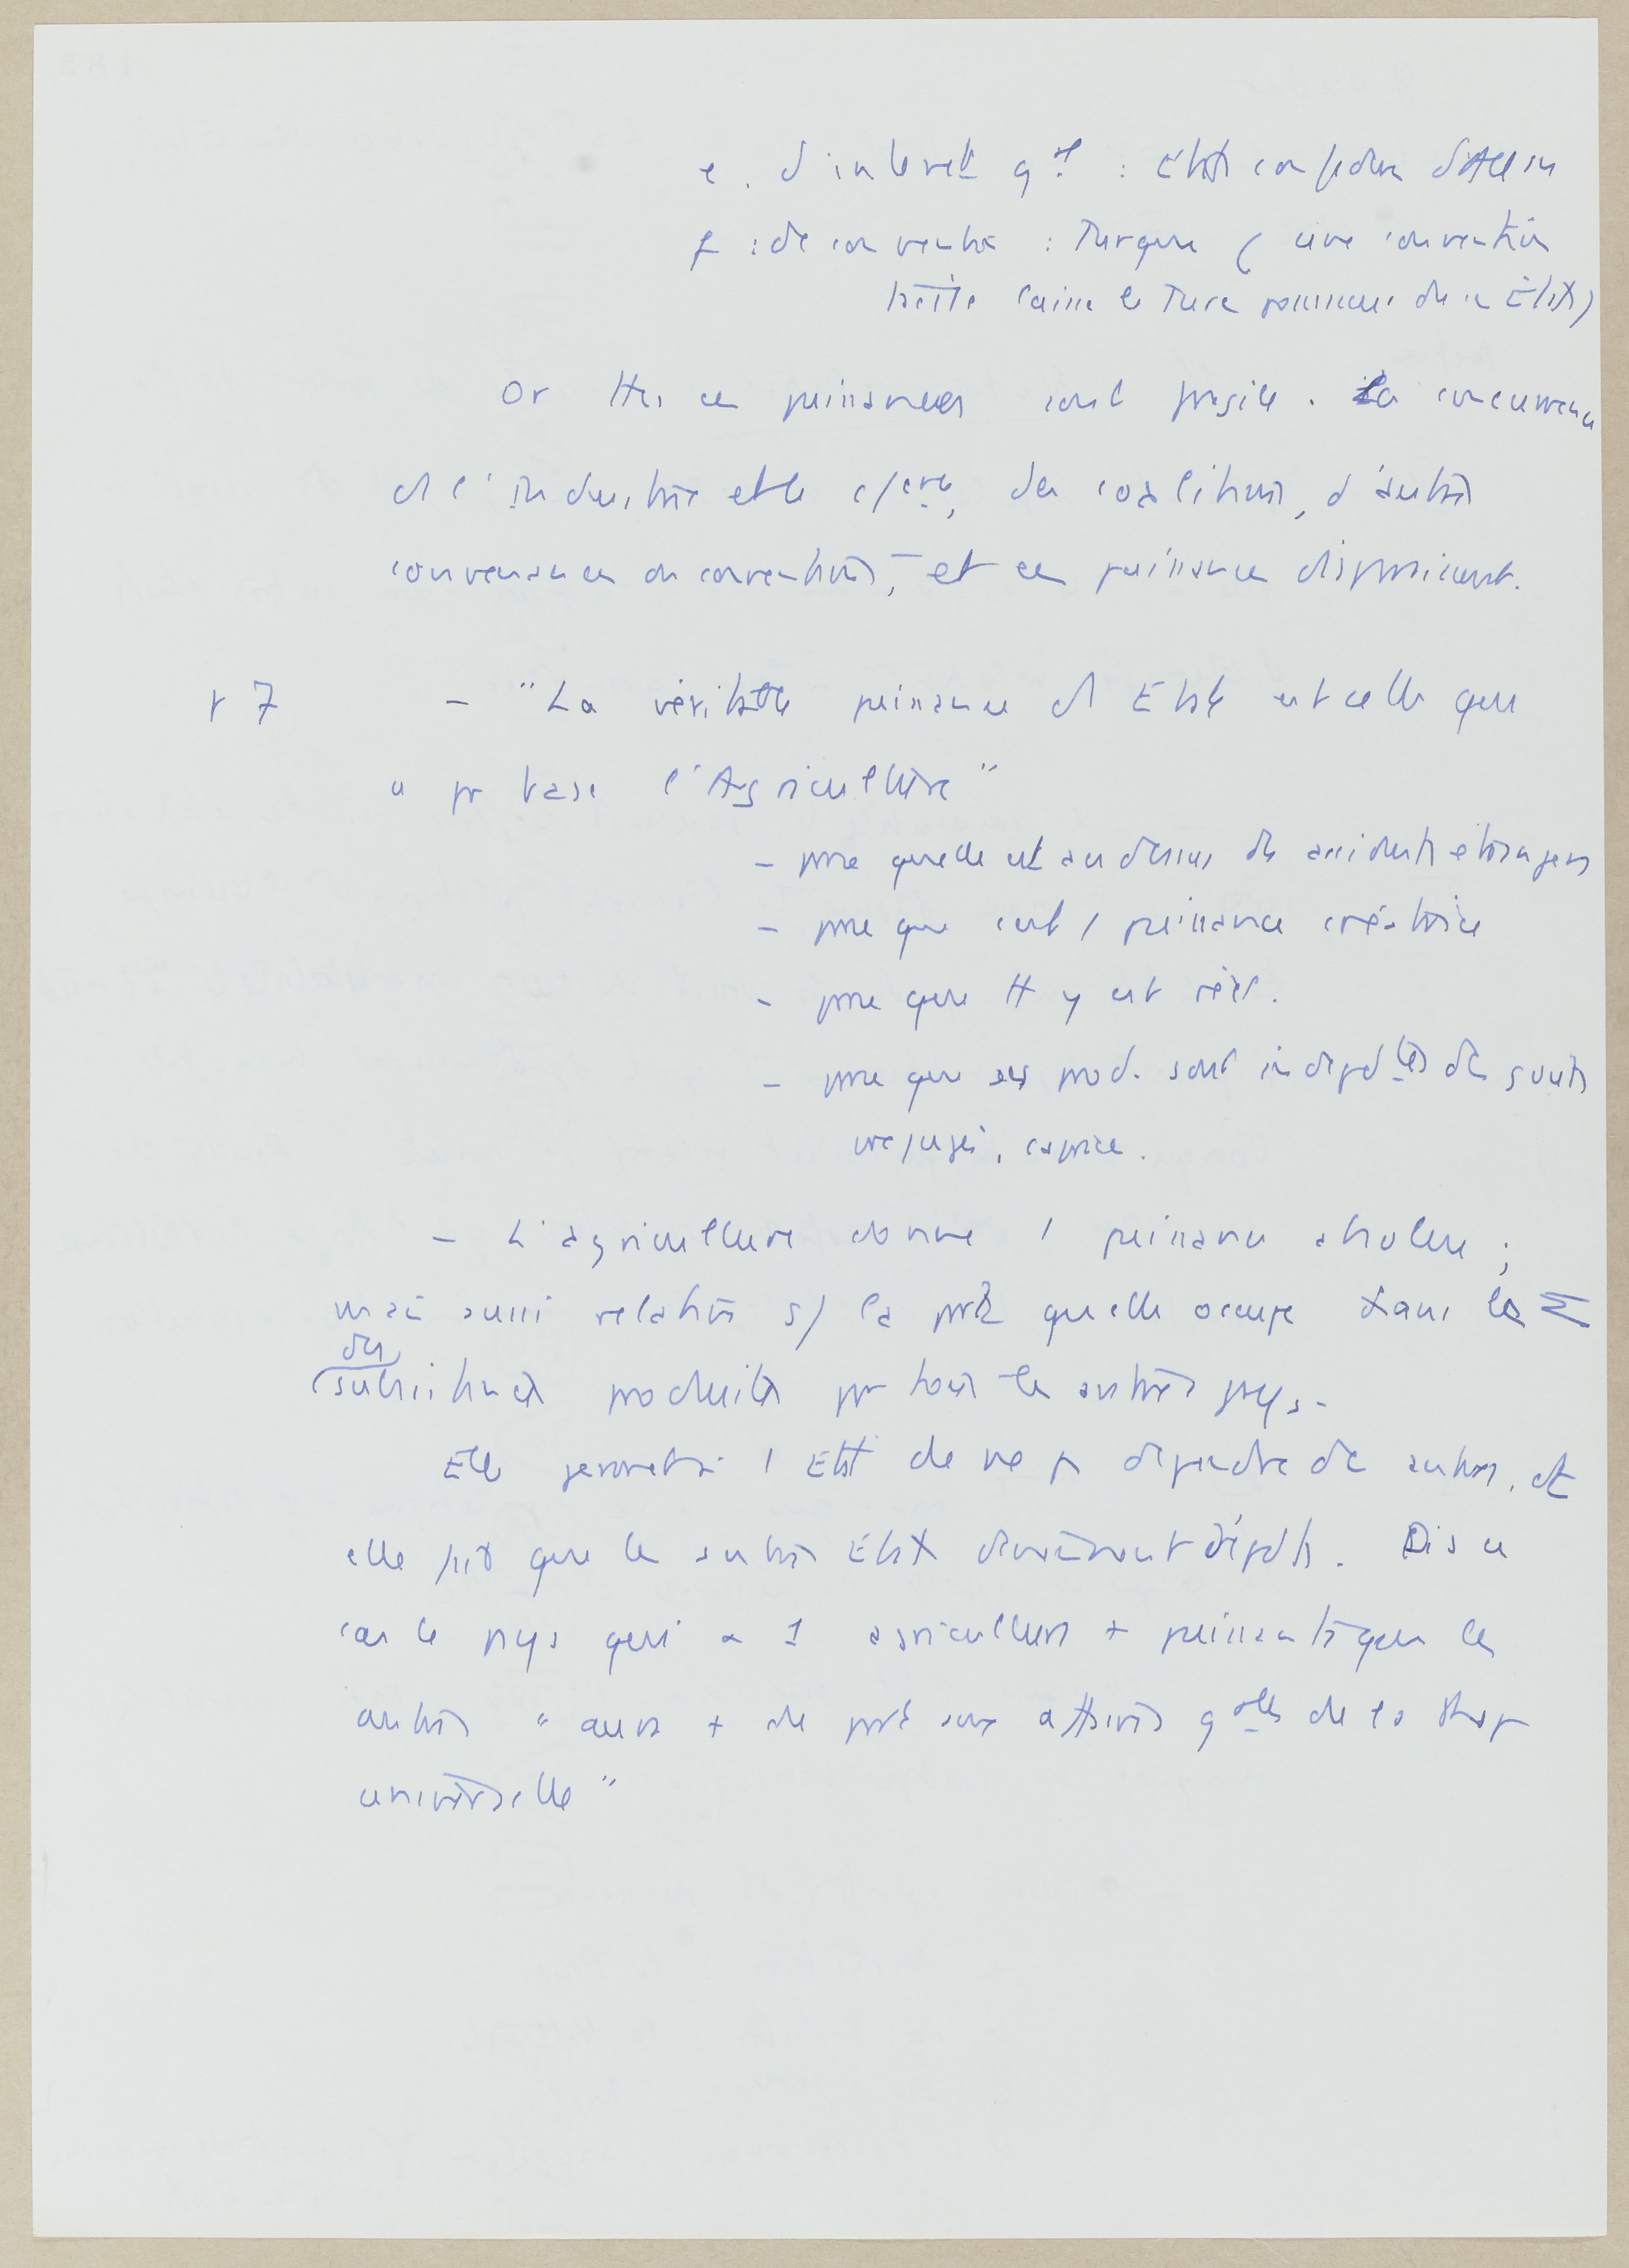 e. d'interet gal : Etats confeder d'Allem
f : de convention : Turquie (une convention
tacite laisse le Turc jouir de ses Etats)
Or ttes ces puissances sont fragiles. La concurrence
de l'industrie et le c/erce, des coalitions, d'autres
convenances ou conventions, – et ces puissances disparaissent.
p 7 – "La véritable puissance d'Etat est celle qui
a pr base l'Agriculture"
– pce qu'elle est au dessus des accidents etrangers
– pce que c'est 1 puissance créatrice
– pce que tt y est réel.
– pce que ses prod. sont indepdtes des gouts
prejugés, caprice.
– L'agriculture donne 1 puissance absolue ;
mais aussi relative s/ la qu'elle occupe dans les Σ
des
(subsistances produites pr tous les autres pays.
Elle permet à 1 Etat de ne p dependre des autres, et
elle fait que les autres Etats deviennent dépdts. Dis ce
cas le pays qui a 1 agriculture + puissante que les
autres "aura + de sur affaires gales de la
universelle"